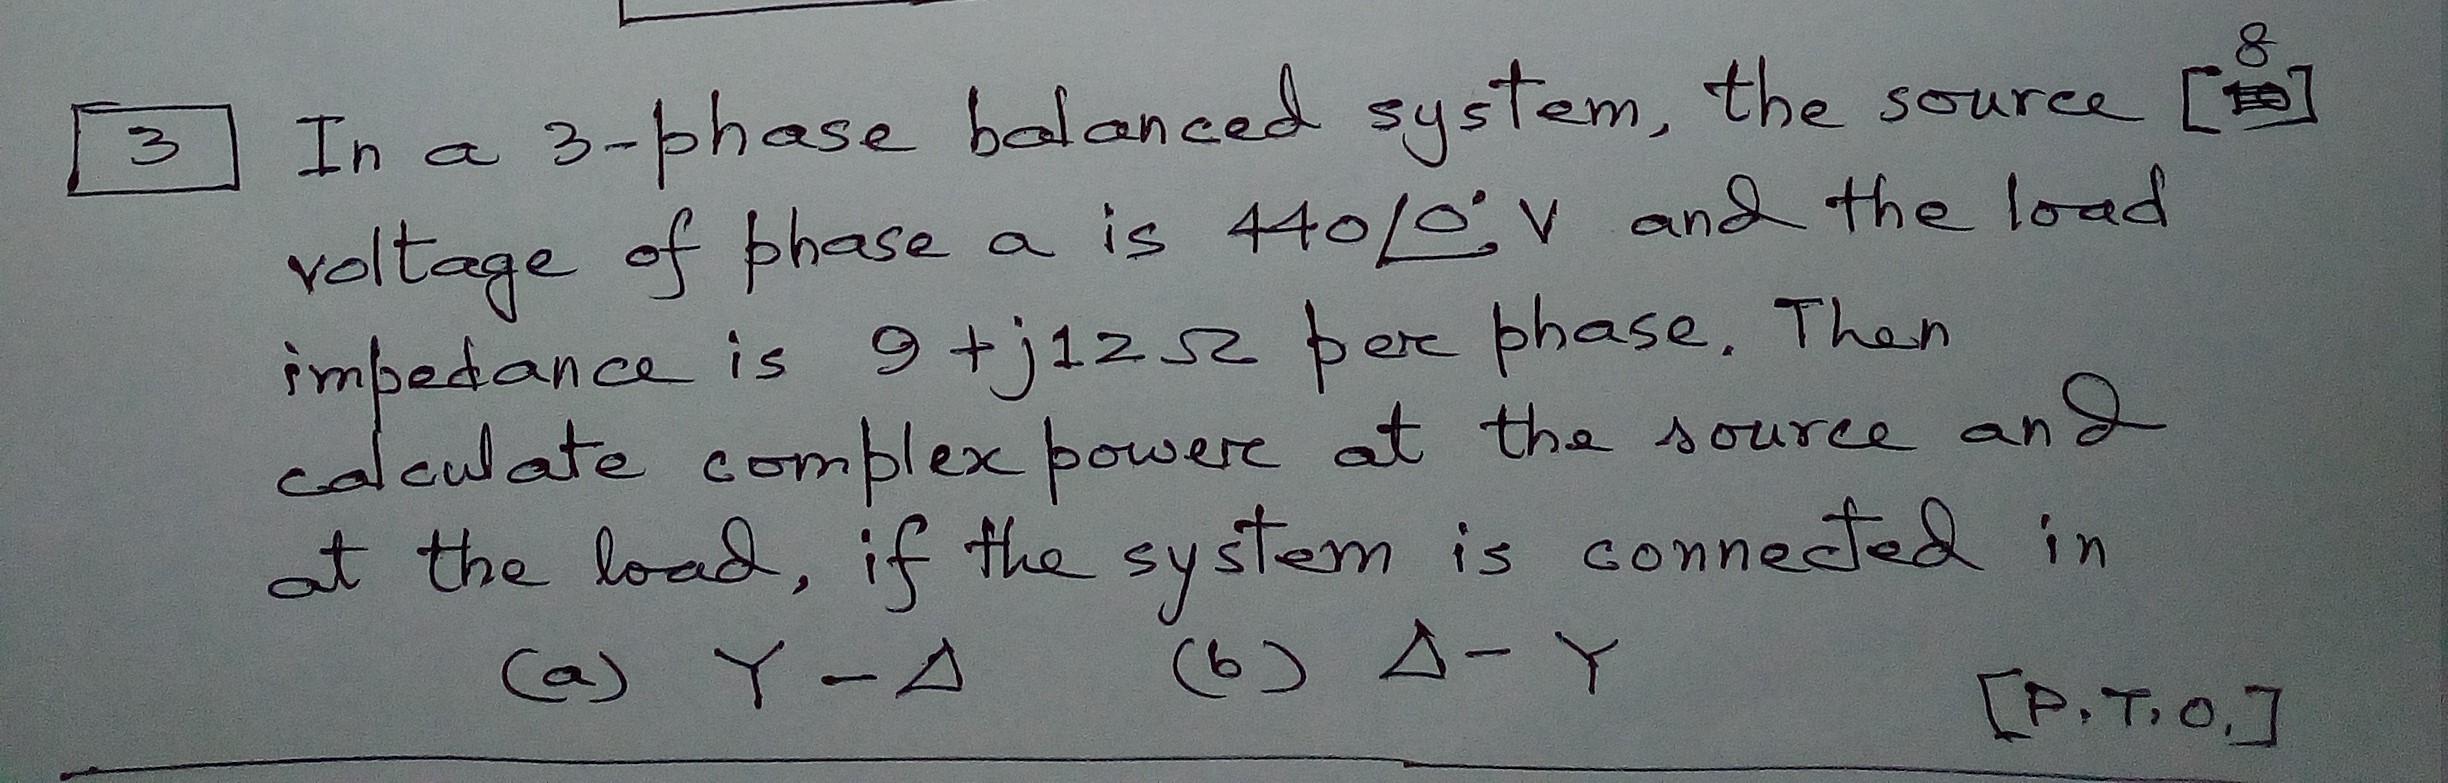 3 In a 3-phase balanced system, the source [8]
voltage of phase a is 440∠0°, V and the load
impedance is 9+j12Ω per phase. Then
calculate complex power at the source and
at the load, if the system is connected in
(a) Y-Δ (b) Δ-Y
[P.T.O.]